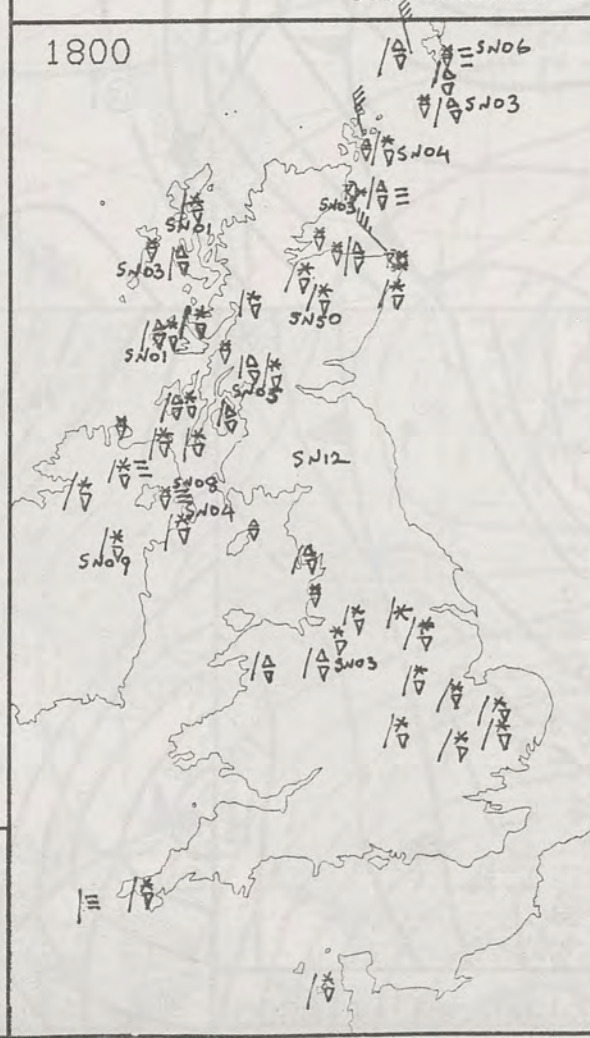 1800
SN06
SN03
SN04
SN03
SN01
SN03
SN50
SN01
SN05
SN12
SN08
SN04
SN09
SN03